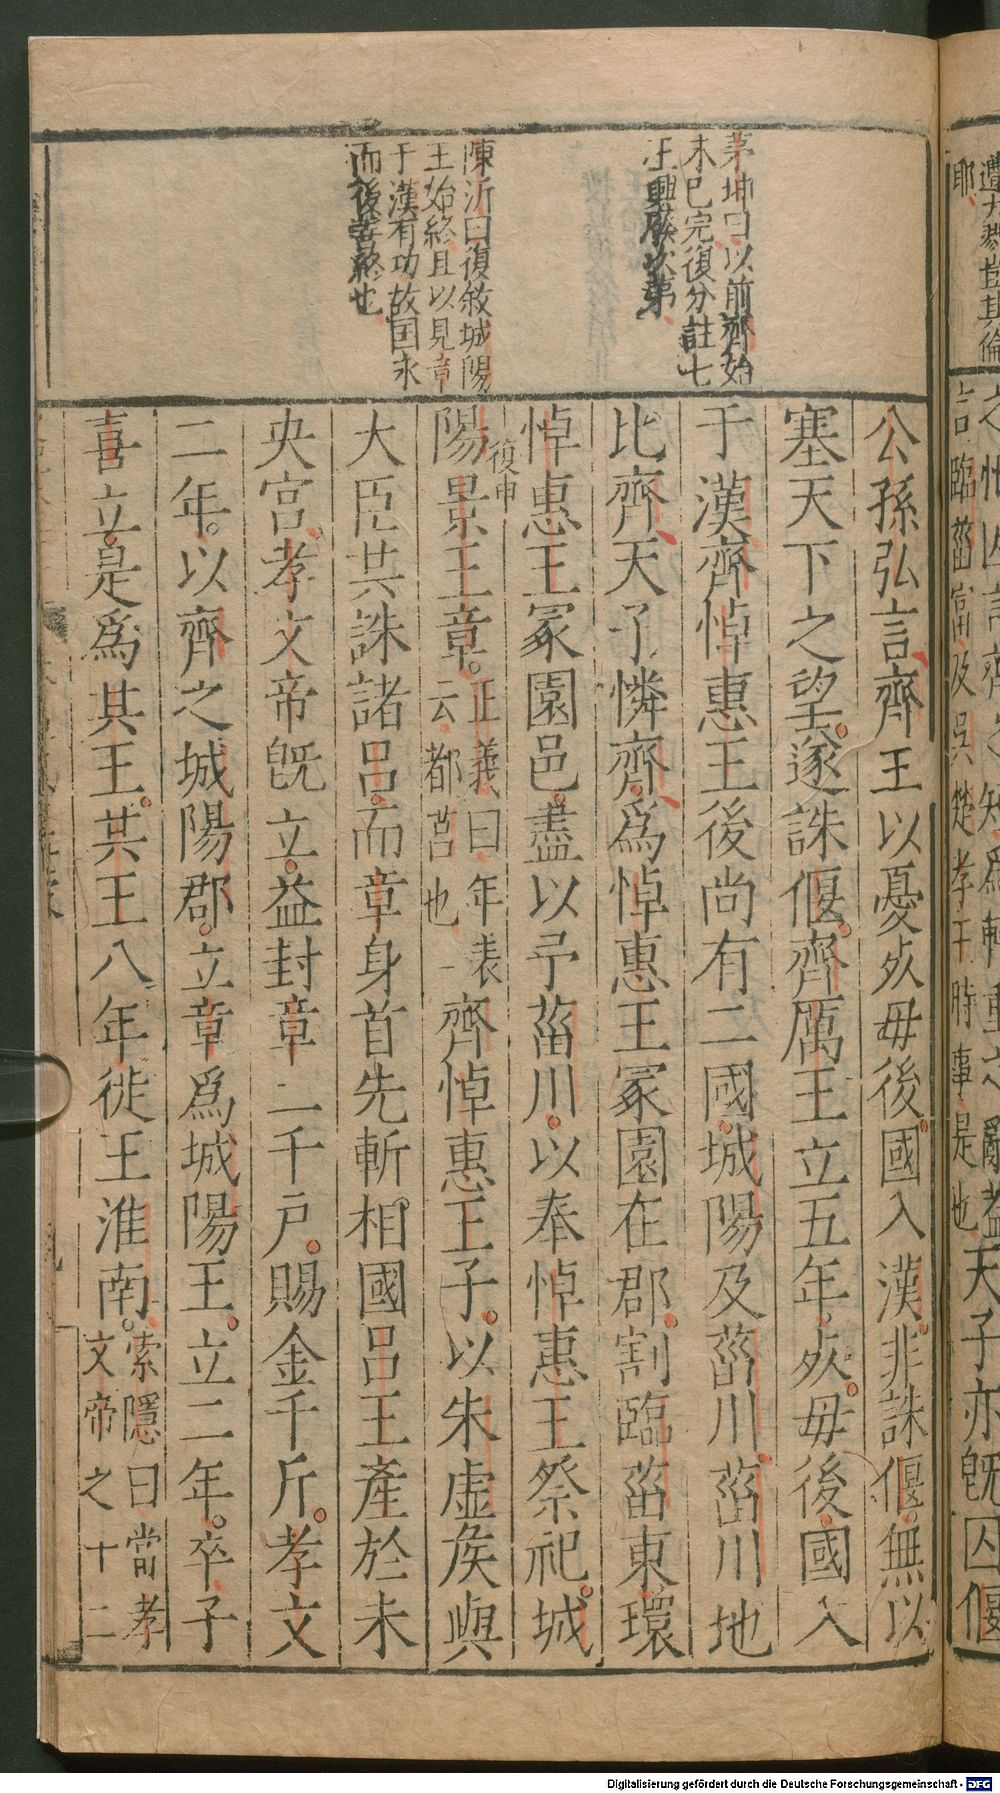 公孫弘言齊王以憂死毋後國入漢非誅偃無以
塞天下之望遂誅偃齊厲王立五年死毋後國入
于漢齊悼惠王後尚有二國城陽及菑川菑川地
比齊天子憐齊爲悼惠王冢園在郡割臨菑東環
悼惠王冢園邑盡以予菑川以奉悼惠王祭祀城
復申
陽景王章
正義曰年表
云都莒也
齊悼惠王子以朱虛矦與
大臣共誅諸呂而章身首先斬相國呂王產於未
央宮孝文帝旣立益封章二千戶賜金千斤孝文
二年以齊之城陽郡立章爲城陽王立二年卒子
喜立是爲其王共王八年徙王淮南
索隱曰當孝
文帝之十二
茅坤曰以前齊始
末已完復分註七
王興廢次第
陳沂曰復敘城陽
王始終且以見章
于漢有功故国永
而後善終也
天子亦旣囚偃
言臨菑富及吳楚孝王時事是也
耶
Digitalisierung gefördert durch die Deutsche Forschungsgemeinschaft - DFG